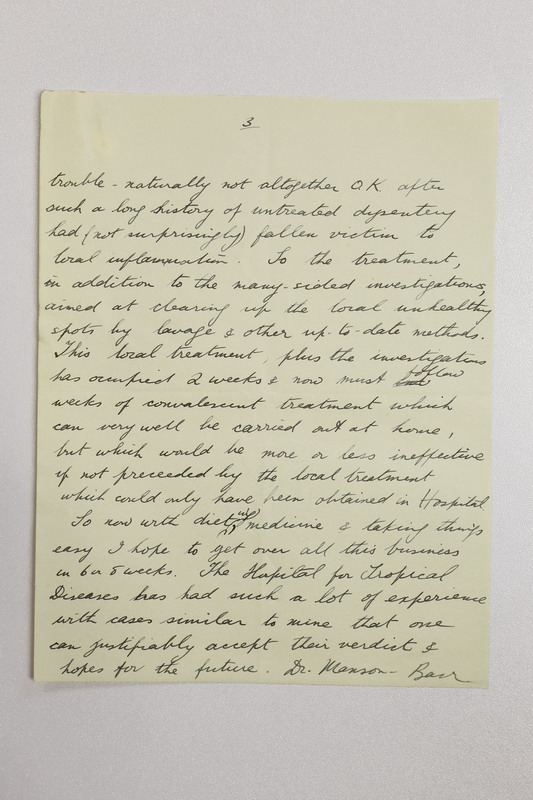 3
trouble - naturally not altogether O.K. after
such a long history of untreated dysentery
had (not surprisingly) fallen victim to
local inflammation. So the treatment,
in addition to the many-sided investigations,
aimed at clearing up the local unhealthy
spots by lavage & other up-to-date methods.
This local treatment, plus the investigations
has occupied 2 weeks & now must follow
weeks of convalescent treatment which
can very well be carried out at home,
but which would be more or less ineffective
if not preceeded by the local treatment
which could only have been obtained in Hospital
So now with dieting, medicine & taking things
easy I hope to get over all this business
in 6 or 8 weeks. The Hospital for Tropical
Diseases has had such a lot of experience
with cases similar to mine that one
can justifiably accept their verdict &
hopes for the future. Dr. Manson-Barr